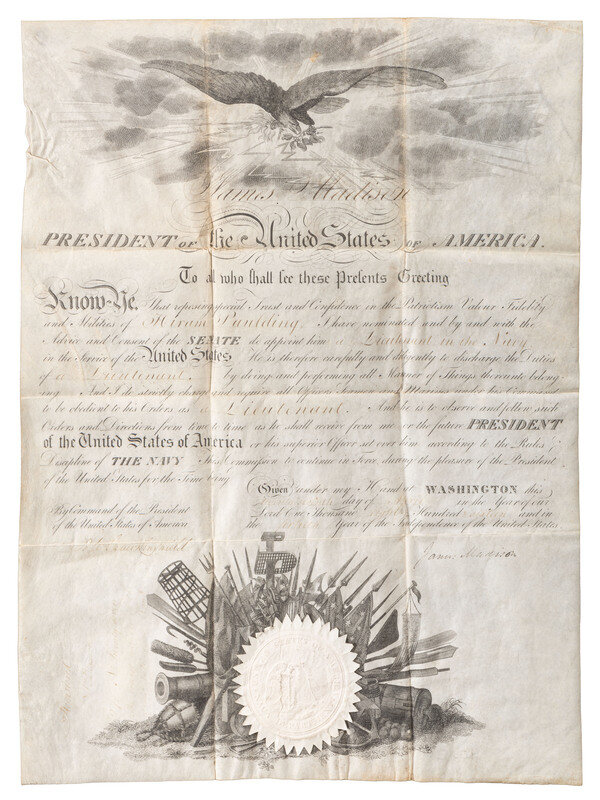 James Madison
PRESIDENT OF the United States OF AMERICA.
To all who shall see these Presents Greeting
Know-Ye, That reposing special Trust and Confidence in the Patriotism Valour Fidelity
and Abilities of Hiram Paulding, I have nominated and by and with the
Advice and Consent of the SENATE do appoint him a Lieutenant in the Navy
in the Service of the United States. He is therefore carefully and diligently to discharge the Duties
of a Lieutenant, by doing and performing all Manner of Things thereto belong
ing. And I do strictly charge and require all Officers Seamen and Marines under his Command
to be obedient to his Orders as a Lieutenant. And he is to observe and follow such
Orders and Directions from time to time as he shall receive from me or the future PRESIDENT
of the United States of America or his superior Officer set over him according to the Rules
Discipline of THE NAVY This Commission to continue in Force during the pleasure of the President
of the United States for the Time being
Given under my Hand at WASHINGTON this
day of in the Year of our
Lord One Thousand Eight Hundred and in
the Year of the Independence of the United States.
By Command of the President
of the United States of America
James Madison